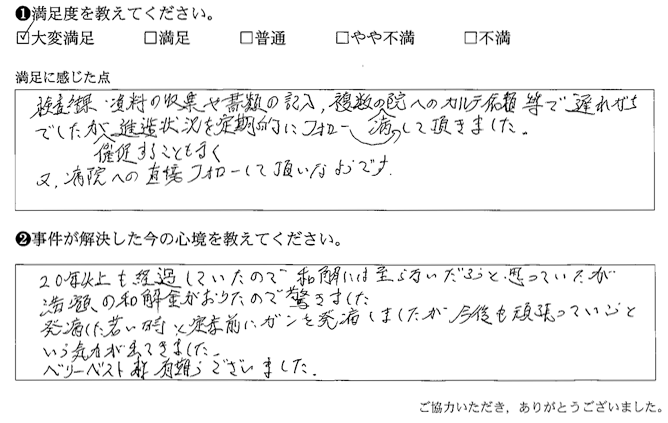 ❶満足度を教えてください。
☑大変満足 □満足 □普通 □やや不満 □不満
満足に感じた点
検査結果・資料の収集や書類の記入、複数の病院へのカルテ依頼等で遅れがち
でしたが、進捗状況を定期的にフォローして頂きました。
催促することもなく
又、病院への直接フォローして頂いた
❷事件が解決した今の心境を教えてください。
20年以上も経過していたので和解には至らないだろうと思っていたが
満額の和解金がおりたので驚きました
発病した若い時と定年前にガンを発病しましたが今後も頑張っていこうと
いう気力が出てきました。
ベリーベスト様 有難うございました。
ご協力いただき、ありがとうございました。